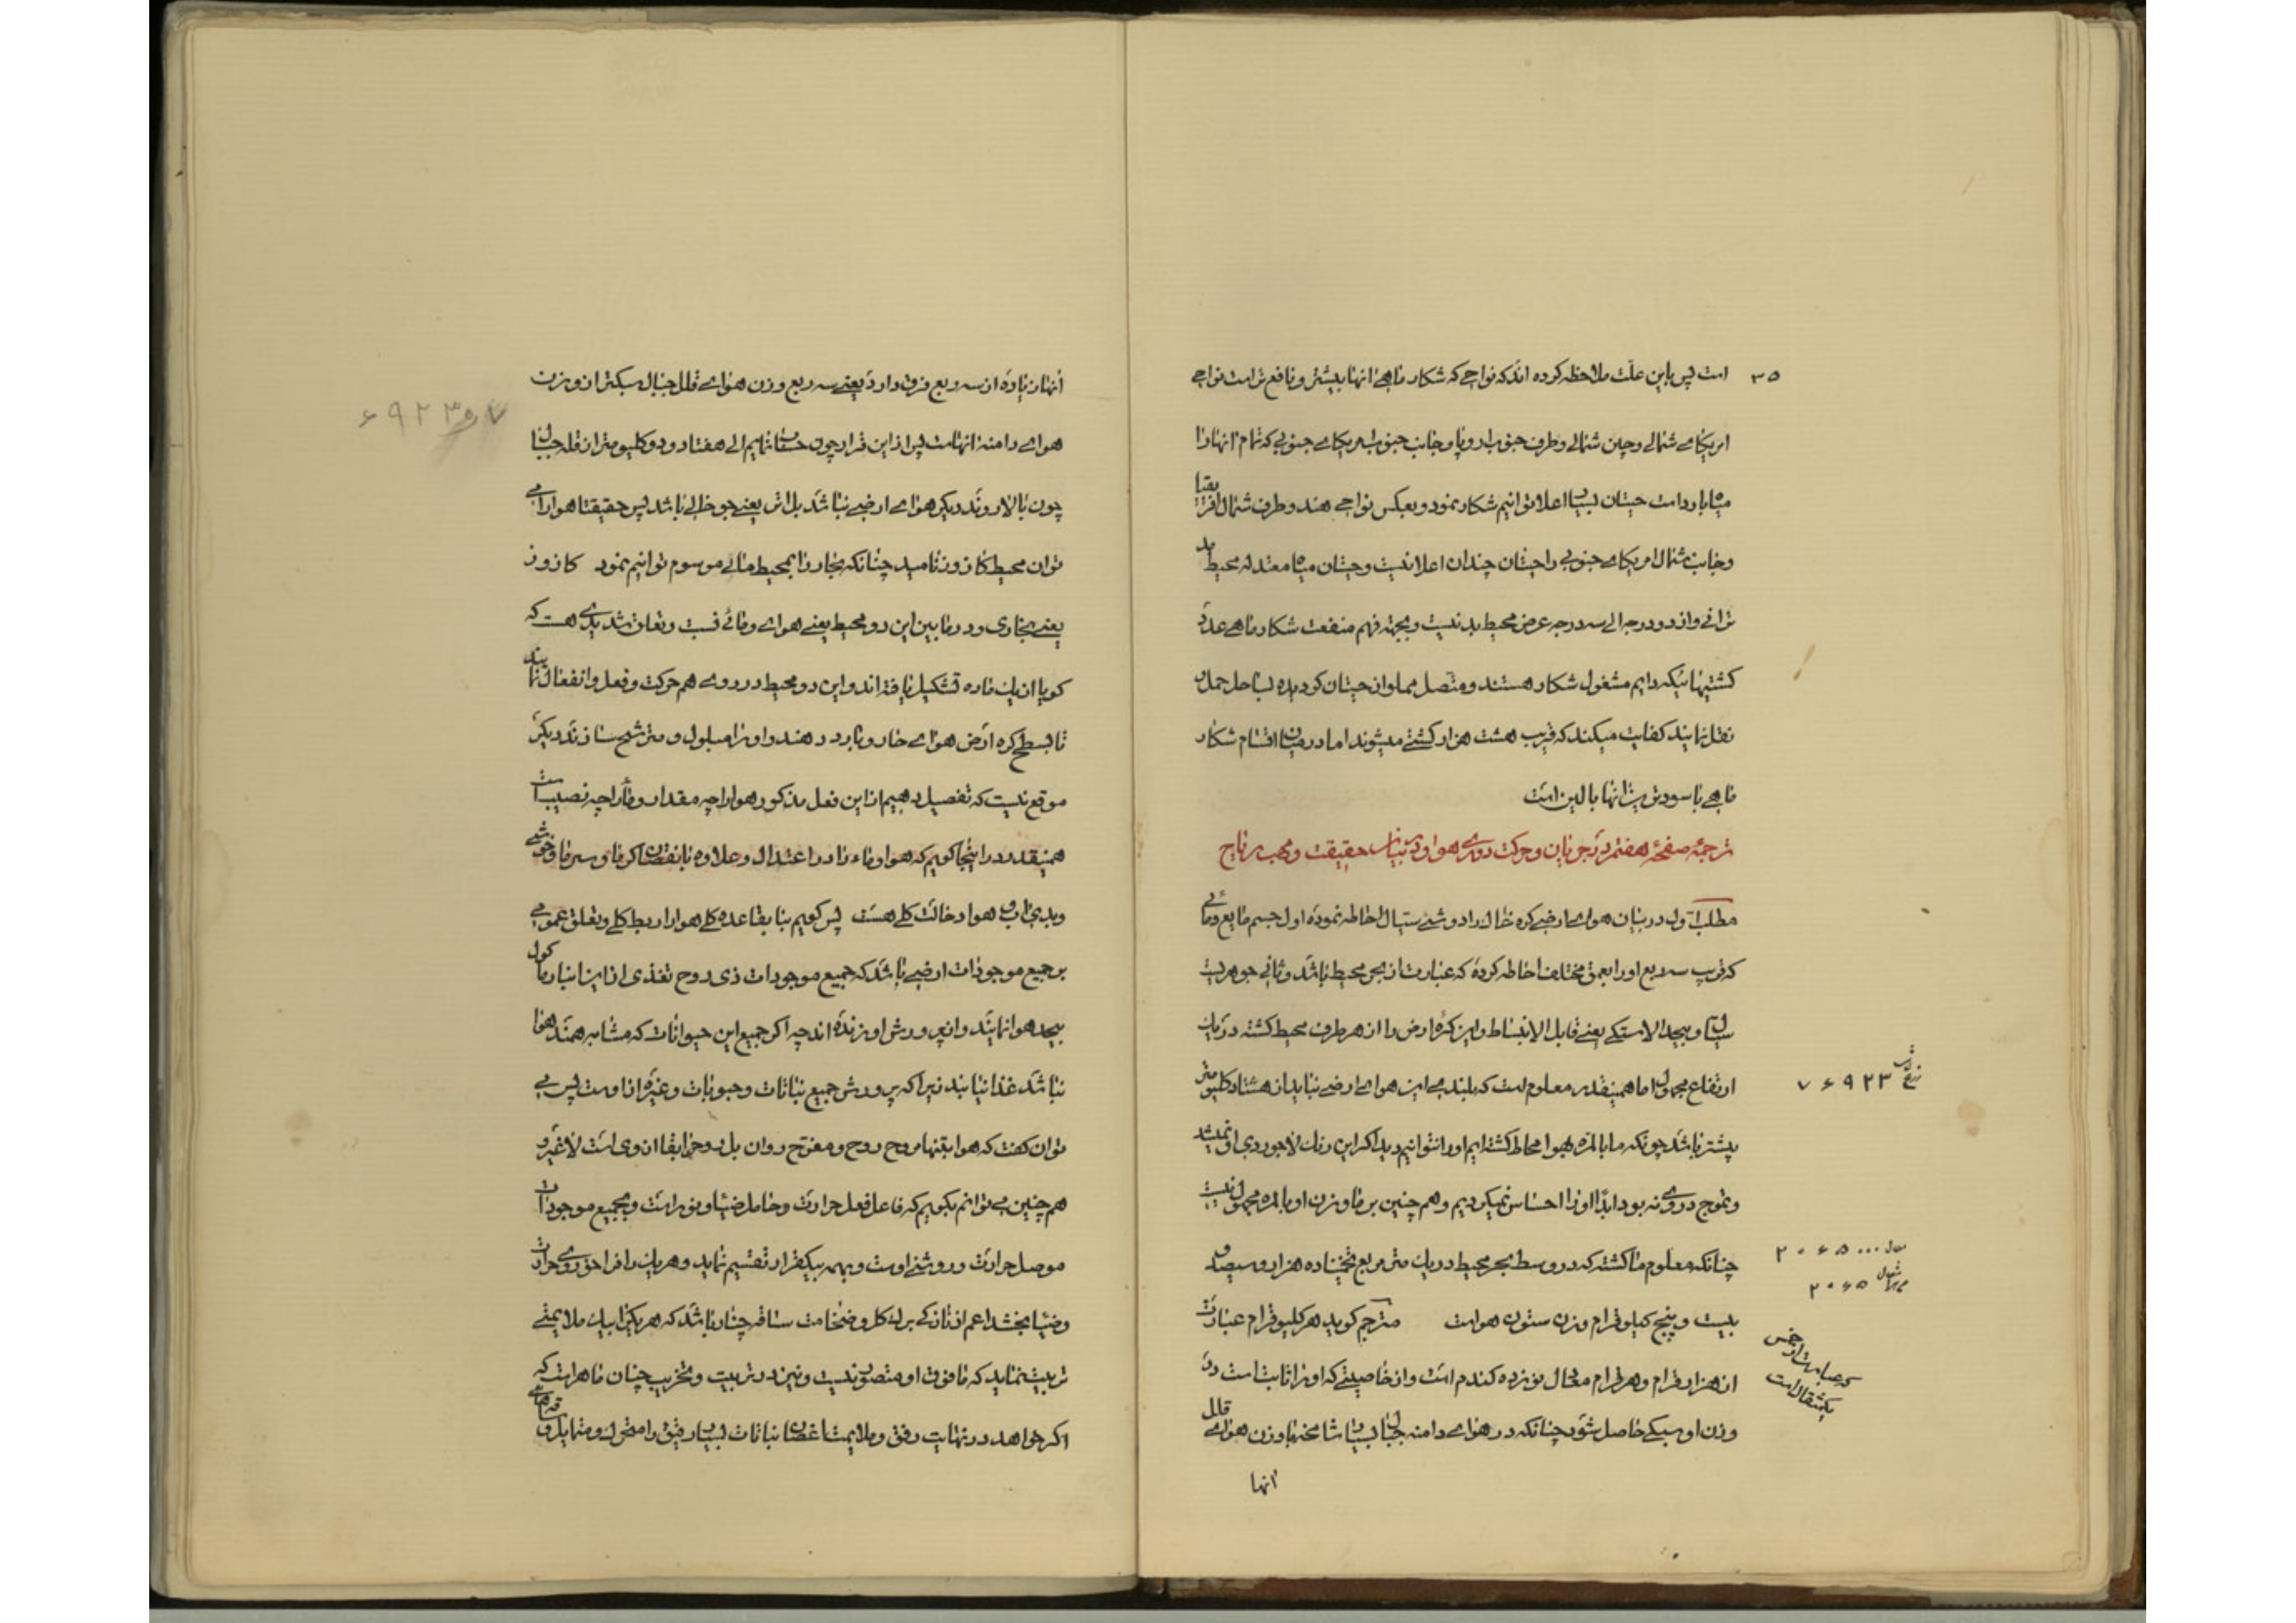 ۳۵
است پس باین علت ملاحظه کرده اند که نواحی که شکار ماهی انها بیشتر و نافع تر است نواحی
امریکای شمالی و چین شمالی و طرف جنوب اروپا و جانب جنوب امریکای جنوبی که تمام انها را
میاه بارد است حیتان بسیار اعلا توانیم شکار نمود و بعکس نواحی هند و طرف شمال افریقا
و جانب شمال امریکای جنوبی را حیتان چندان اعلا نیست و حیتان میاه معتدله محیط بد
از دو درجه الی سه درجه عرض محیط بد نیست و بجهة فهم منفعت شکار ماهی عدد
کشتیهائیکه دایم مشغول شکار هستند و متصل مملو از حیتان کردیده بساحل حمل و
نقل نمایند کفایت میکند که قریب هشت هزار کشتی میشوند اما در میان اقسام شکار
ماهی با سودترین انها بالین است
ترجمهٔ صفحهٔ هفتم در جریان و حرکت دوری هوا و در بیان حقیقت و مهب ریاح
مطلب اول در بیان هوای ارضی کره خاک را دو شئ سیال احاطه نموده اول جسم مایع و مائی
که قریب سه ربع او را بعمق مختلف احاطه کرده که عبارت از بحر محیط باشد و ثانی جوهریست
سیال و بیحد الاستیکی یعنی قابل الانبساط و این کرهٔ ارض را از هر طرف محیط کشته در یک
ارتفاع مجهول اما همینقدر معلوم است که بلندی این هوای ارضی نباید از هشتاد کلیومتر
۷۶۹۲۳
بیشتر باشد چونکه ما بالمره بهوا محاط کشته ایم او را نتوانیم دید اکر این رنک لاجوردی او نمیشد
و تموج دروی نه بود ابدًا او را احساس نمیکردیم و هم چنین بر ما وزن او بالمره مجهول نیست
چنانکه معلوم ما کشته که در وسط بحر محیط در یک متر مربع تخمینًا ده هزار و سیصد و
۲۰۶۵۰۰۰
۲۰۶۵
بیست و پنج کیلوقرام وزن ستون هواست مترجم کوید هر کلیوقرام عبارت
از هزار قرام و هر قرام معادل نوزده کندم است و از خاصیتی که او را ثابت است در
یکمثقال است
وزن او سبکی حاصل شود چنانکه در هوای دامنه جبال بسیار شامخه با وزن هوای قلل
انها
انها زیاده از سه ربع فرق دارد یعنی سه ربع وزن هوای قلل جبال سبکتر از وزن
۶۹۲۳
هوای دامنه انهاست پس از این قرار چون حساب نمائیم الی هفتاد و دو کلیومتر از قله جبال
چون بالا روند دیکر هوای ارضی نباشد بل اثر یعنی جو خالی باشد پس حقیقتا هوا را می
توان محیط کازوز نامید چنانکه بحار را بمحیط مائی موسوم توانیم نمود کازوز
یعنی بخاری و در مابین این دو محیط یعنی هوای و مائی نسبت و تعلق شدیدی هست که
کویا از یک ماده تشکیل یافته اند و این دو محیط در روی هم حرکت و فعل و انفعال نمایند
تا بسطح کره ارض هوای حار و بارد دهند و او را مبلول و مترشح سازند دیکر
موقع نیست که تفصیل دهیم از این فعل مذکور هوا را چه مقدار و ماء را چه نصیب است
همینقدر در اینجا کویم که هوا و ماء را در اعتدال و علاوه یا نقصان کرما و سرما و خوشی
و بدی اب و هوا دخالت کلی هست پس کویم بنا بقاعده کلی هوا را ربط کلی و تعلق عمومی
بر جمیع موجودات ارضی باشد که جمیع موجودات ذی روح تغذی از این انبار ماکول
بیحد هوا نمایند و از پرورش او زنده اند چه اکر جمیع این حیوانات که مشابه همند هوا
نباشد غذا نیابند زیرا که پرورش جمیع نباتات و حبوبات و غیره از اوست پس می
توان کفت که هوا بتنها مروح روح و مفتوح روان بل روح را بقا از وی است لا غیر و
هم چنین می توانم بکویم که فاعل فعل حرارت و حامل ضیا و نور است و بجمیع موجودات
موصل حرارت و روشنی اوست و بهمه بیکقرار تقسیم نماید و هر یک را فراخور وی حرارت
و ضیا بخشد اعم از نازکی برک کل و ضخامت ساقه چنار باشد که هر یک را بیک ملایمتی
تربیت نماید که مافوق او متصور نیست و نیز در تربیت و تخریب چنان ماهر است که
اکر خواهد در نهایت رفق و ملایمت اغصان نباتات بسیار رقیق را متحرک و متمایل و